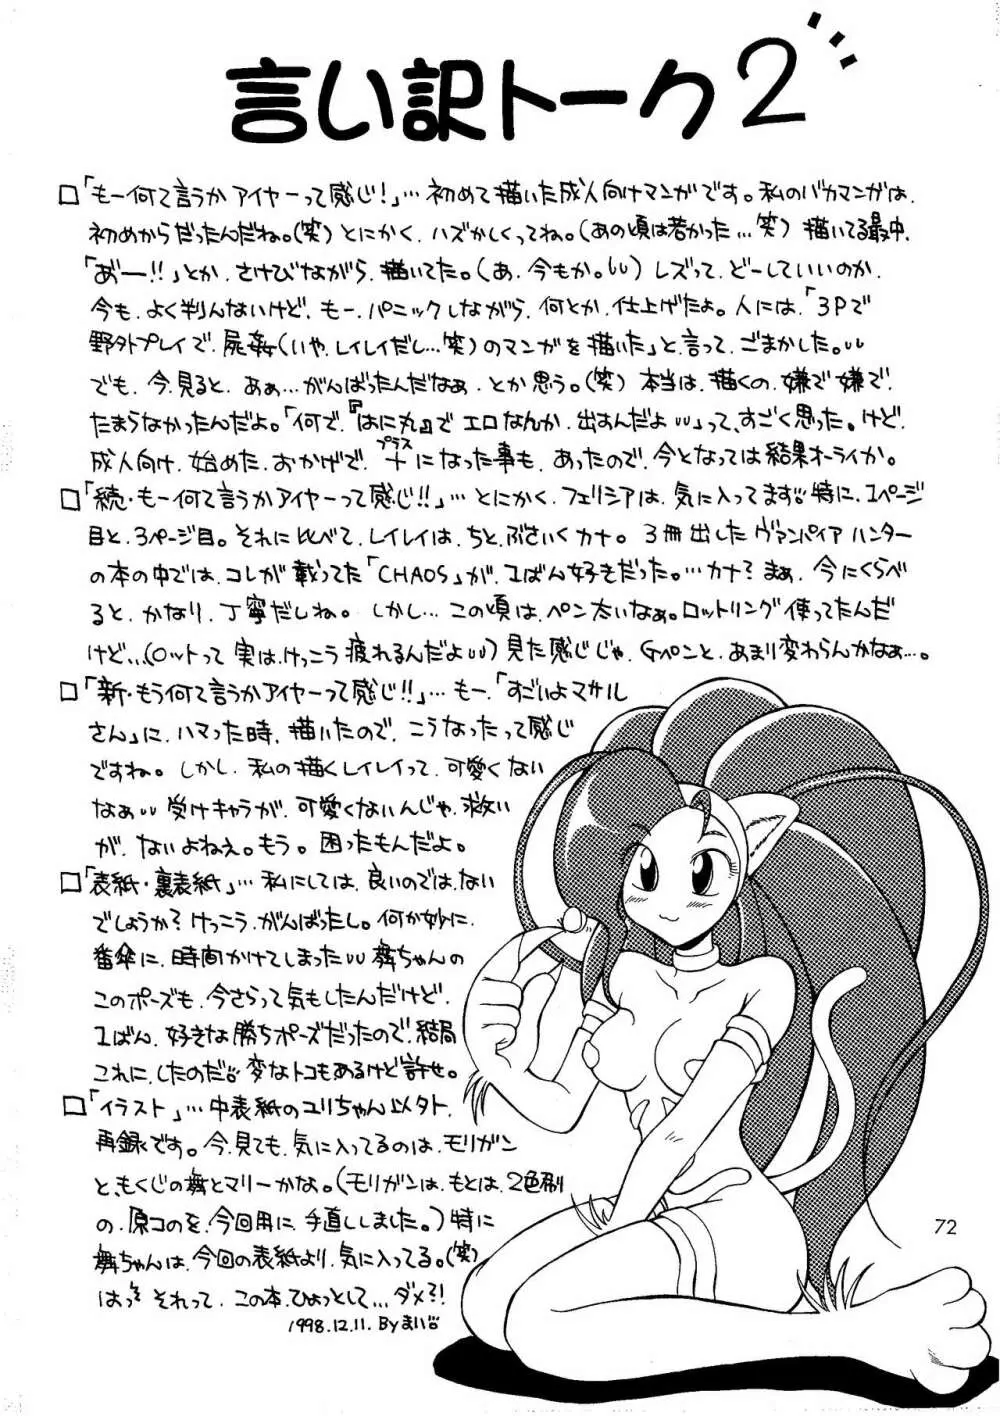 言い訳トーク2
□「もー何て言うかアイヤーって感じ！」…初めて描いた成人向けマンガです。私のバカマンガは、
初めからだったんだね。(笑)とにかく、ハズかしくってね。(あの頃は若かった…笑)描いてる最中、
「あ゛ー!!」とか、さけびながら、描いてた。(あ、今もか。)レズって、どーしていいのか、
今も、よく判んないけど、もー、パニックしながら、何とか、仕上げたよ。人には、「3Pで
野外プレイで、屍姦(いや、レイレイだし…笑)のマンガを描いた」と、言って、ごまかした。
でも、今、見ると、あぁ…がんばったんだなぁ、とか思う。(笑)本当は、描くの、嫌で嫌で、
たまらなかったんだよ。「何で、『はに丸』でエロなんか、出すんだよ」って、すごく思った。けど、
成人向け、始めた、おかげで、＋プラスになった事も、あったので、今となっては結果オーライか。
□「続・もー何て言うかアイヤーって感じ!!」…とにかく、フェリシアは、気に入ってます。特に、1ページ
目と、3ページ目。それに比べて、レイレイは、ちと、ぶさいくカナ。3冊出したヴァンパイアハンター
の本の中では、コレが載ってた「CHAOS」が、1ばん好きだった。…カナ？まぁ、今にくらべ
ると、かなり、丁寧だしね。しかし…この頃は、ペン太いなぁ。ロットリング使ってたんだ
けど…(ロットって実は、けっこう疲れるんだよ)見た感じじゃ、Gペンと、あまり変わらんかなぁ…。
□「新・もう何て言うかアイヤーって感じ!!」…もー、「すごいよマサル
さん」に、ハマった時、描いたので、こうなったって感じ
ですね。しかし、私の描くレイレイって、可愛くない
なぁ 受けキャラが、可愛くないんじゃ、救い
が、ないよねえ。もう。困ったもんだよ。
□「表紙・裏表紙」…私にしては、良いのでは、ない
でしょうか？けっこう、がんばったし。何か妙に、
番傘に、時間かけてしまった 舞ちゃんの
このポーズも、今さらって気もしたんだけど、
1ばん、好きな勝ちポーズだったので、結局
これに、したのだ。変なトコもあるけど許せ。
□「イラスト」…中表紙のユリちゃん以外、
再録です。今、見ても、気に入ってるのは、モリガン
と、もくじの舞とマリーかな。(モリガンは、もとは、2色刷
の、原コのを、今回用に、手直ししました。)特に
舞ちゃんは、今回の表紙より、気に入ってる。(笑)
はっ それって、この本、ひょっとして…ダメ?!
1998.12.11. By まい
72